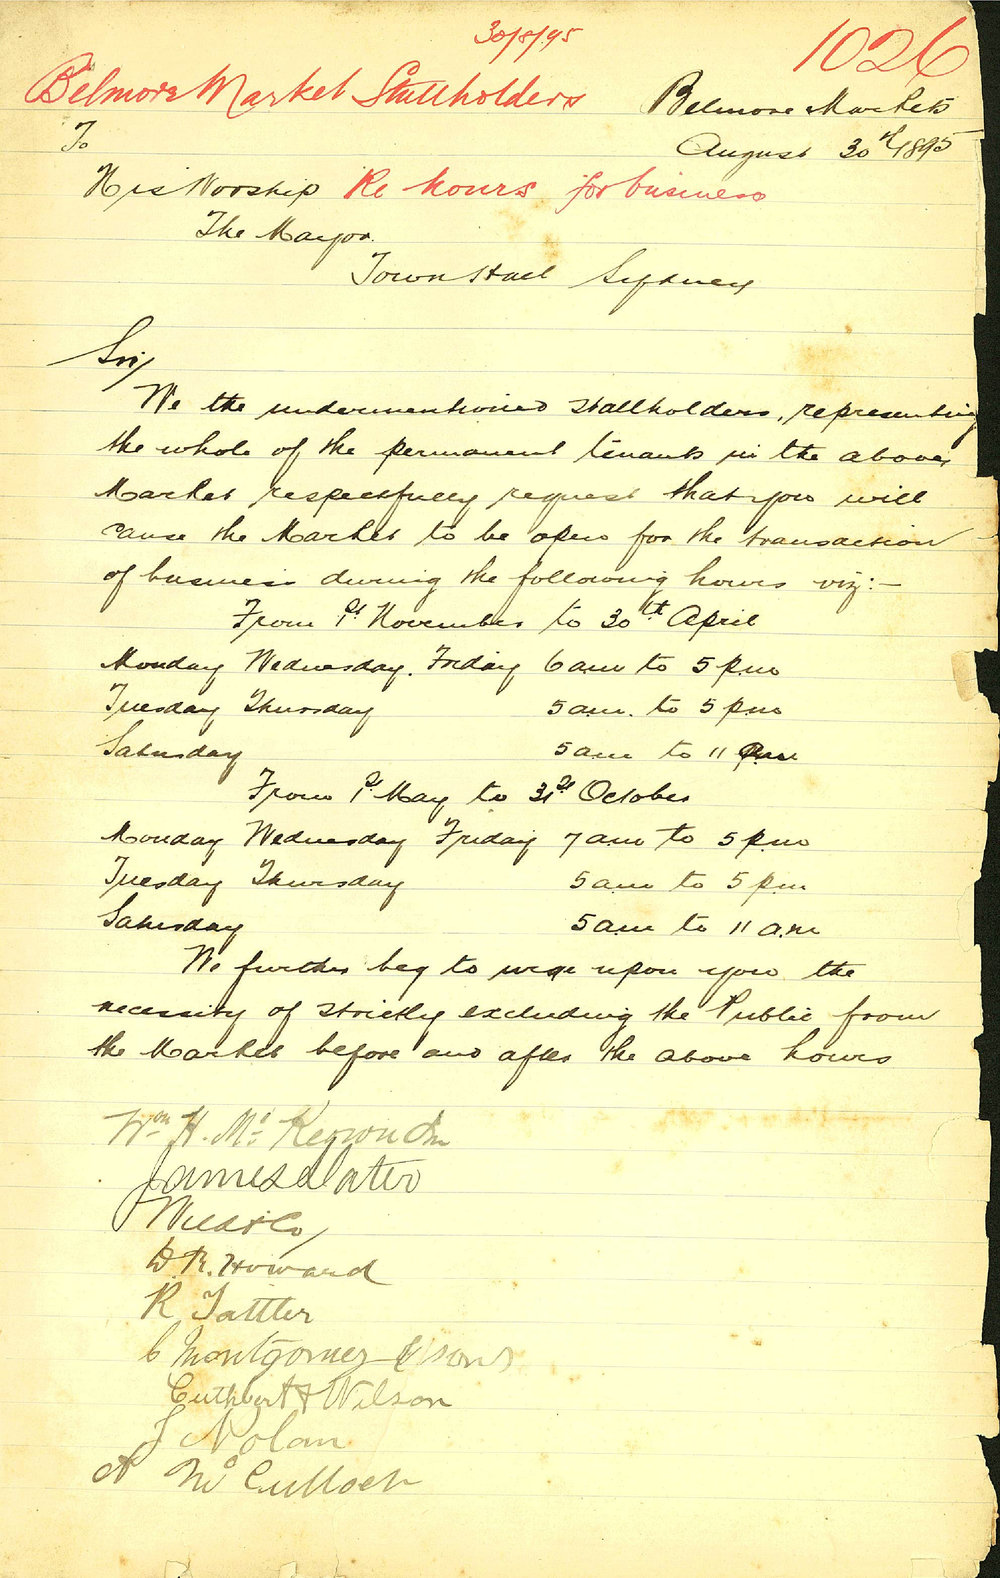 30/8/95
1026
Belmore Market Stallholders
Belmore Markets
To
August 30th/1895
His Worship Re hours for business
The Mayor.
Town Hall Sydney
Sir/
We the undermentioned stallholders, representing
the whole of the permanent tenants in the above
Market respectfully request that you will
cause the Market to be open for the transaction
of business during the following hours viz:-
From 1st November to 30th April
Monday Wednesday. Friday 6 am to 5 p.m
Tuesday Thursday 5 a.m. to 5 p.m
Saturday 5 am to 11 pm
From 1st May to 31st October
Monday Wednesday Friday 7 am to 5 p.m
Tuesday Thursday 5 am to 5 p.m
Saturday 5 a.m to 11 a.m
We further beg to urge upon you the
necessity of strictly excluding the Public from
the Market before and after the above hours
Wm H. Mc
James Slater
Wild & Co
R. Howard
R Tattler
C Montgomery & Sons
Cuthbert & Wilson
J Nolan
A McCulloch